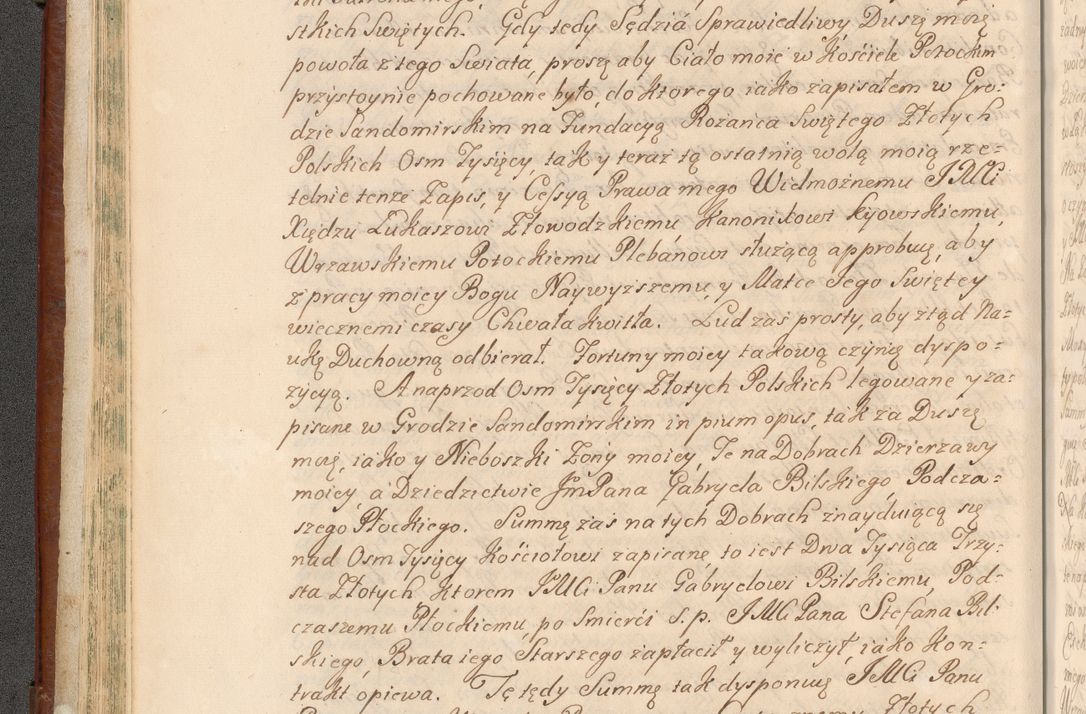 stkich Swiętych. Gdy tedy Sędzia Sprawiedliwy Duszę moię
powoła z tego Swiata, proszę aby Ciało moie w Kościele Potockim
przystoynie pochowane było, do ktorego iako zapisałem w Gro=
dzie Sandomirskim na Fundacyą Rozańca Swiętego Złotych
Polskich Osm Tysięcy, tak y teraz tą ostatnią wolą moią rze=
telnie tenze Zapis, y Cessyą Prawa mego Wielmożnemu JMCi
Xiędzu Łukaszowi Złowodzkiemu Kanonikowi Kyowskiemu,
Wrzawskiemu Potockiemu Plebanowi służącą approbuię, aby
z pracy moiey Bogu Naywyzszemu, y Matce Jego Swiętey
wiecznemi czasy Chwała kwitła. Lud zaś prosty, aby ztąd Na=
ukę Duchowną odbierał. Fortuny moiey takową czynię dyspo=
zycyą. A naprzod Osm Tysięcy Złotych Polskich legowane y za=
pisane w Grodzie Sandomirskim in pium opus, tak za Duszę
moię, iako y Nieboszki Zony moiey, Te na Dobrach Dzierzawy
moiey, a Dziedzictwie JmPana Gabryela Bilskiego, Podcza=
szego Płockiego. Summę zaś na tych Dobrach znayduiącą się
nad Osm Tysięcy Kościołowi zapisane, to iest Dwa Tysiąca Trzy=
sta Złotych, ktorem JMCi Panu Gabryelowi Bilskiemu, Pod=
czaszemu Płockiemu, po Smierći s. p. JMCi Pana Stefana Bil=
skiego Brata iego Starszego zapłacił y wyliczył, iako kon=
trakt opiewa. Tę tedy Summę tak dysponuię JMCi Panu
Złotych